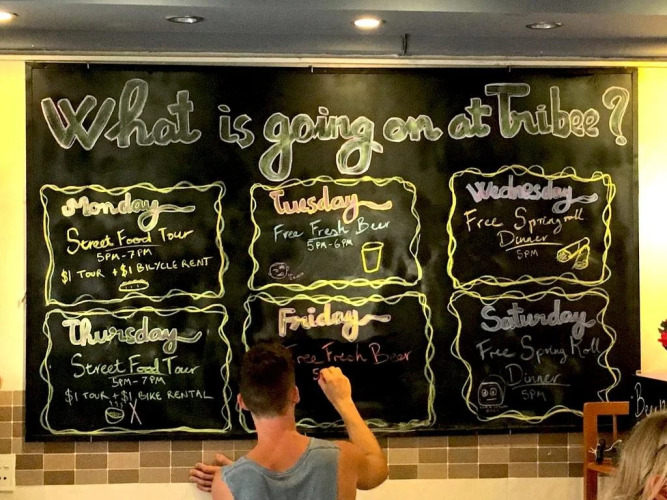 What is going on at Tribee?
Monday
Street Food Tour
5PM-7PM
$1 TOUR + $1 BICYCLE RENT
Tuesday
Free Fresh Beer
5PM-6PM
Wednesday
Free Spring roll
Dinner
5PM
Thursday
Street Food Tour
5PM-7PM
$1 TOUR + $1 BIKE RENTAL
Friday
Free Fresh Beer
5
Saturday
Free Spring Roll
Dinner
5PM